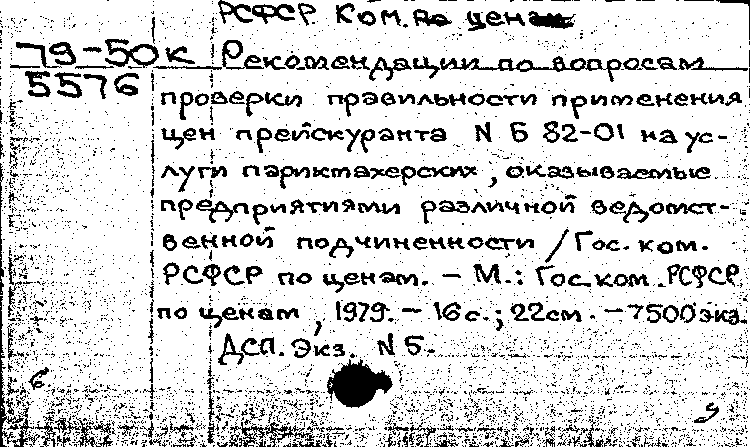 РСФСР. Ком. по ценам
79-50к Рекомендации по вопросам
5576
проверки правильности применения
цен прейскуранта N Б 82-01 на ус-
луги парикмахерских, оказываемые
предприятиями различной ведомст-
венной подчиненности / Гос. ком.
РСФСР по ценам. - М.: Гос. ком. РСФСР
по ценам, 1979. - 16 с.; 22 см. - 7500 экз.
ДСП. Экз. N 5.